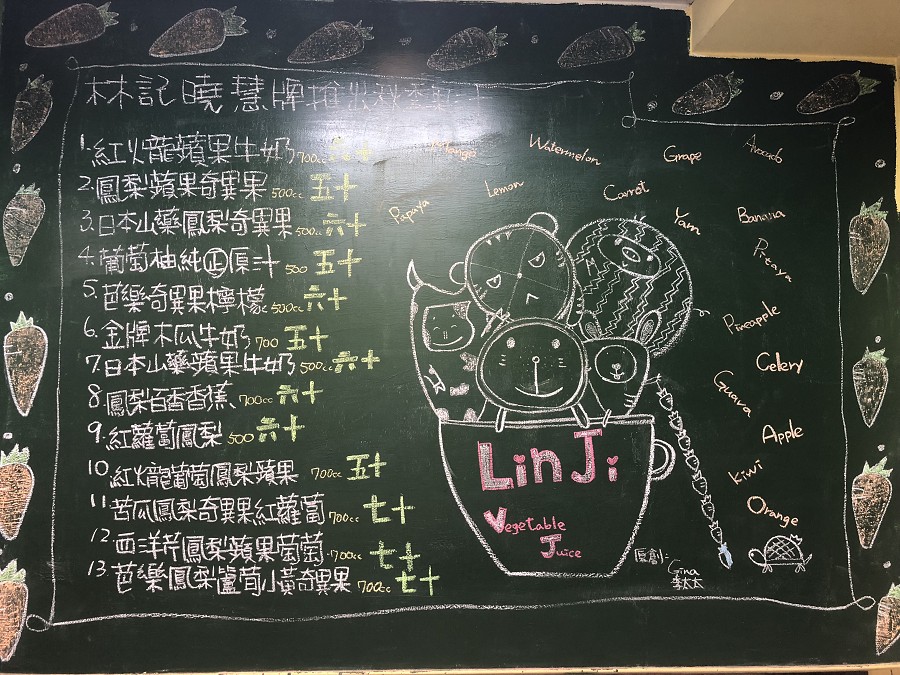 林記曉慧牌推出秋季
1.紅火龍蘋果牛奶700cc六十
2.鳳梨蘋果奇異果500cc五十
3.日本山藥鳳梨奇異果500cc六十
4.葡萄柚純正原汁500五十
5.芭樂奇異果檸檬500cc六十
6.金牌木瓜牛奶700五十
7.日本山藥蘋果牛奶500cc六十
8.鳳梨百香香蕉700cc六十
9.紅蘿蔔鳳梨500六十
10.紅火龍葡萄鳳梨蘋果700cc五十
11苦瓜鳳梨奇異果紅蘿蔔700cc七十
12.西洋芹鳳梨蘋果萄萄700cc七十
13.芭樂鳳梨蘆荀小黃奇異果700cc七十
Mango
Watermelon
Grape
Avocado
Papaya
Lemon
Carrot
Yam
Banana
Pitaya
Pineapple
Celery
Guava
Apple
Kiwi
Orange
LinJi
Vegetable
Juice
原創:Gina
李太太